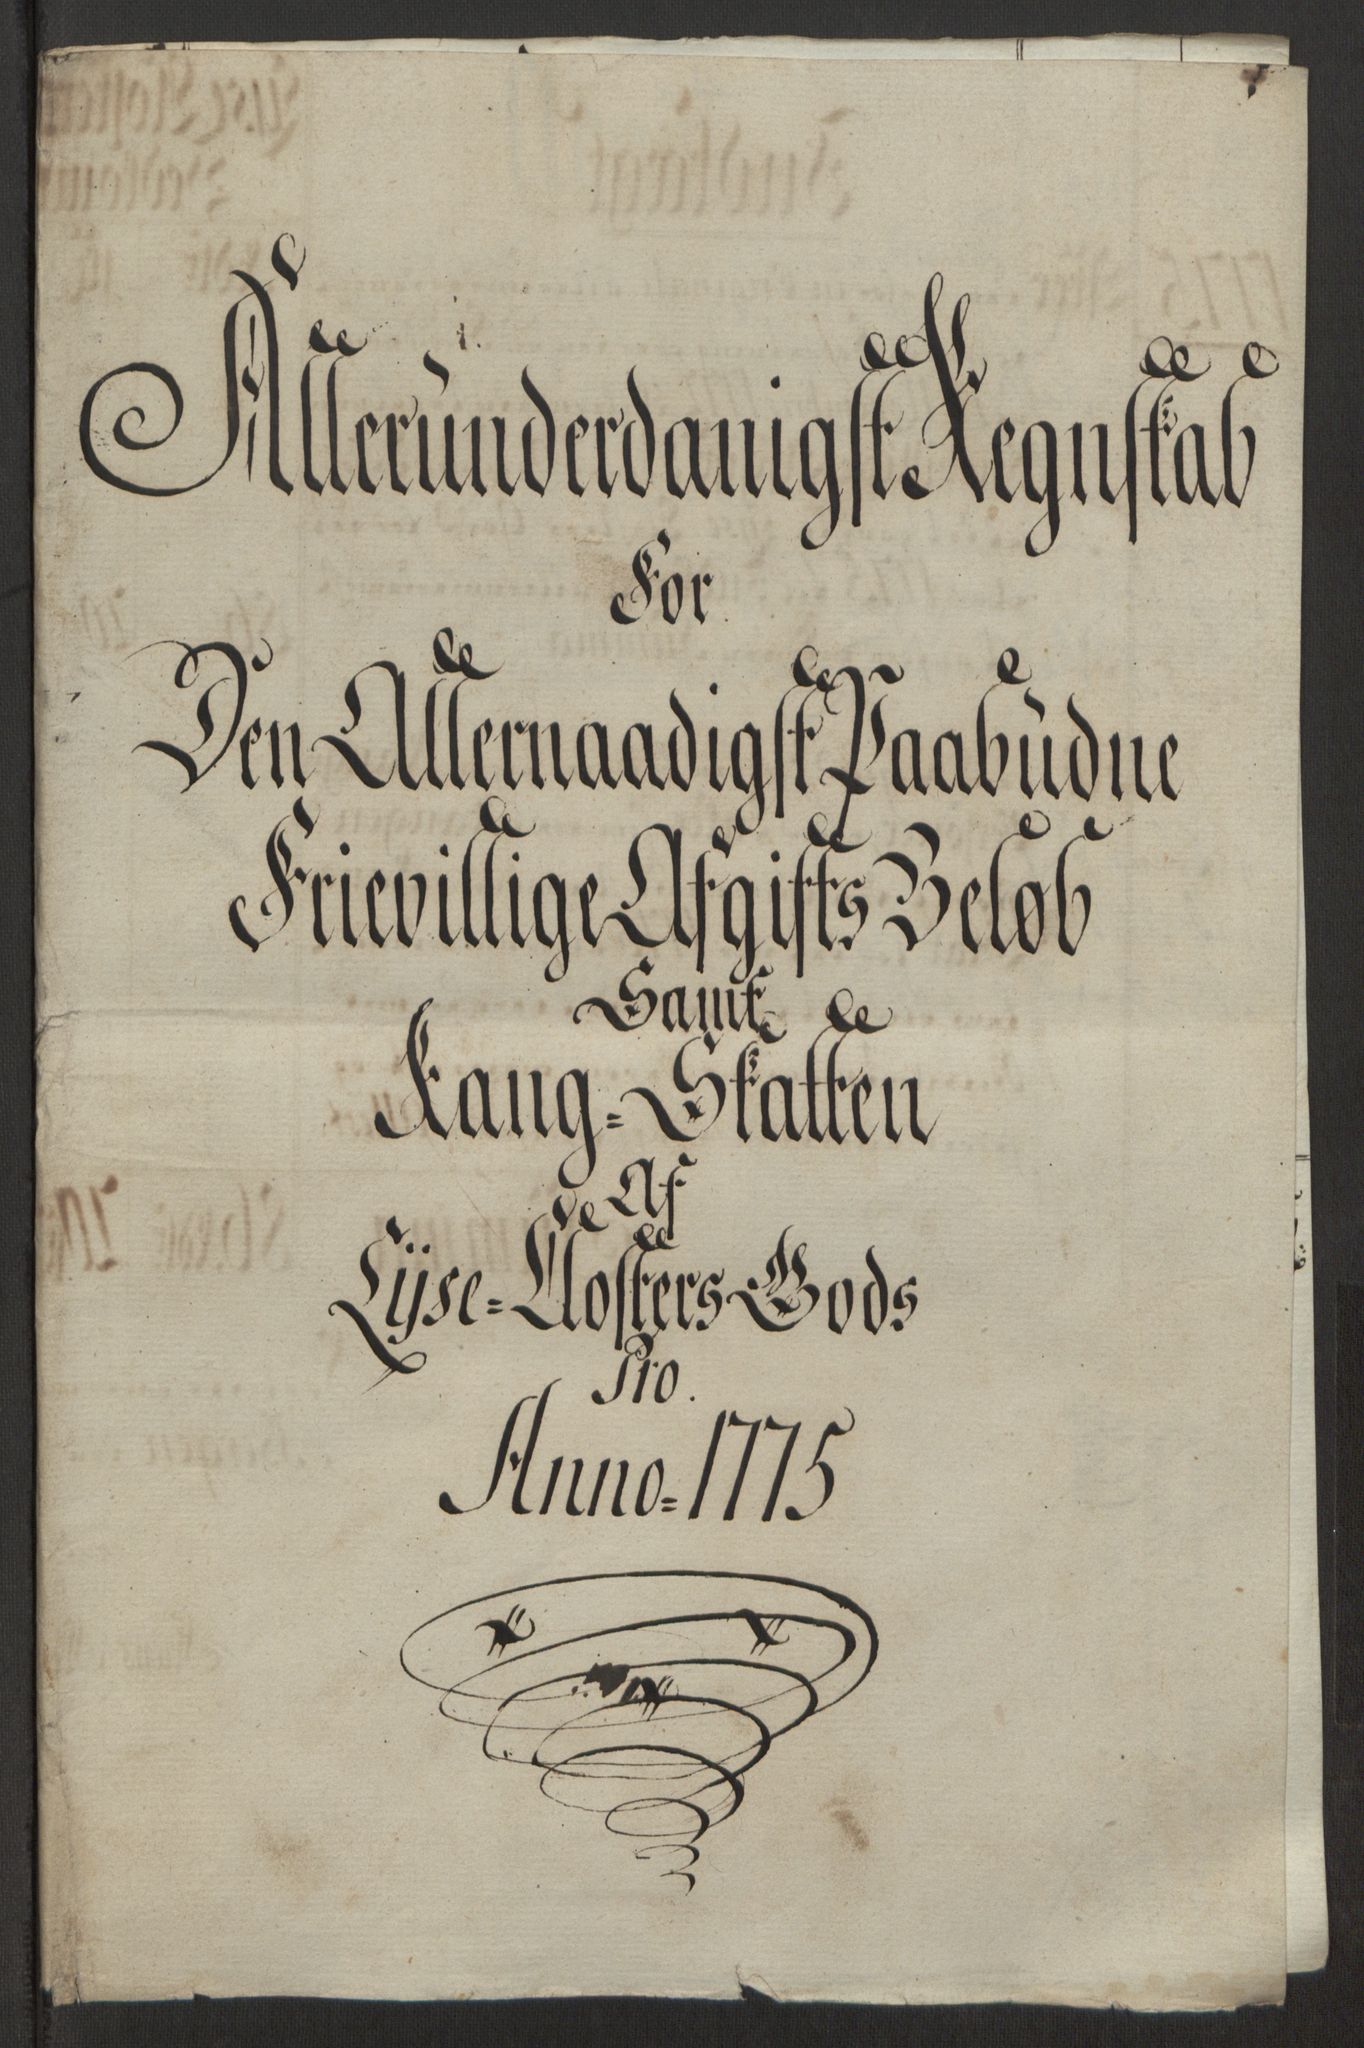 Alleründerdanigst Regnskab
For
Den Allernaadigst Paabüdne
Frievillige Afgifts Beløb
Samt
Rang=Skatten
Af
Lÿse=Closters Gods
Pro.
Anno=1775